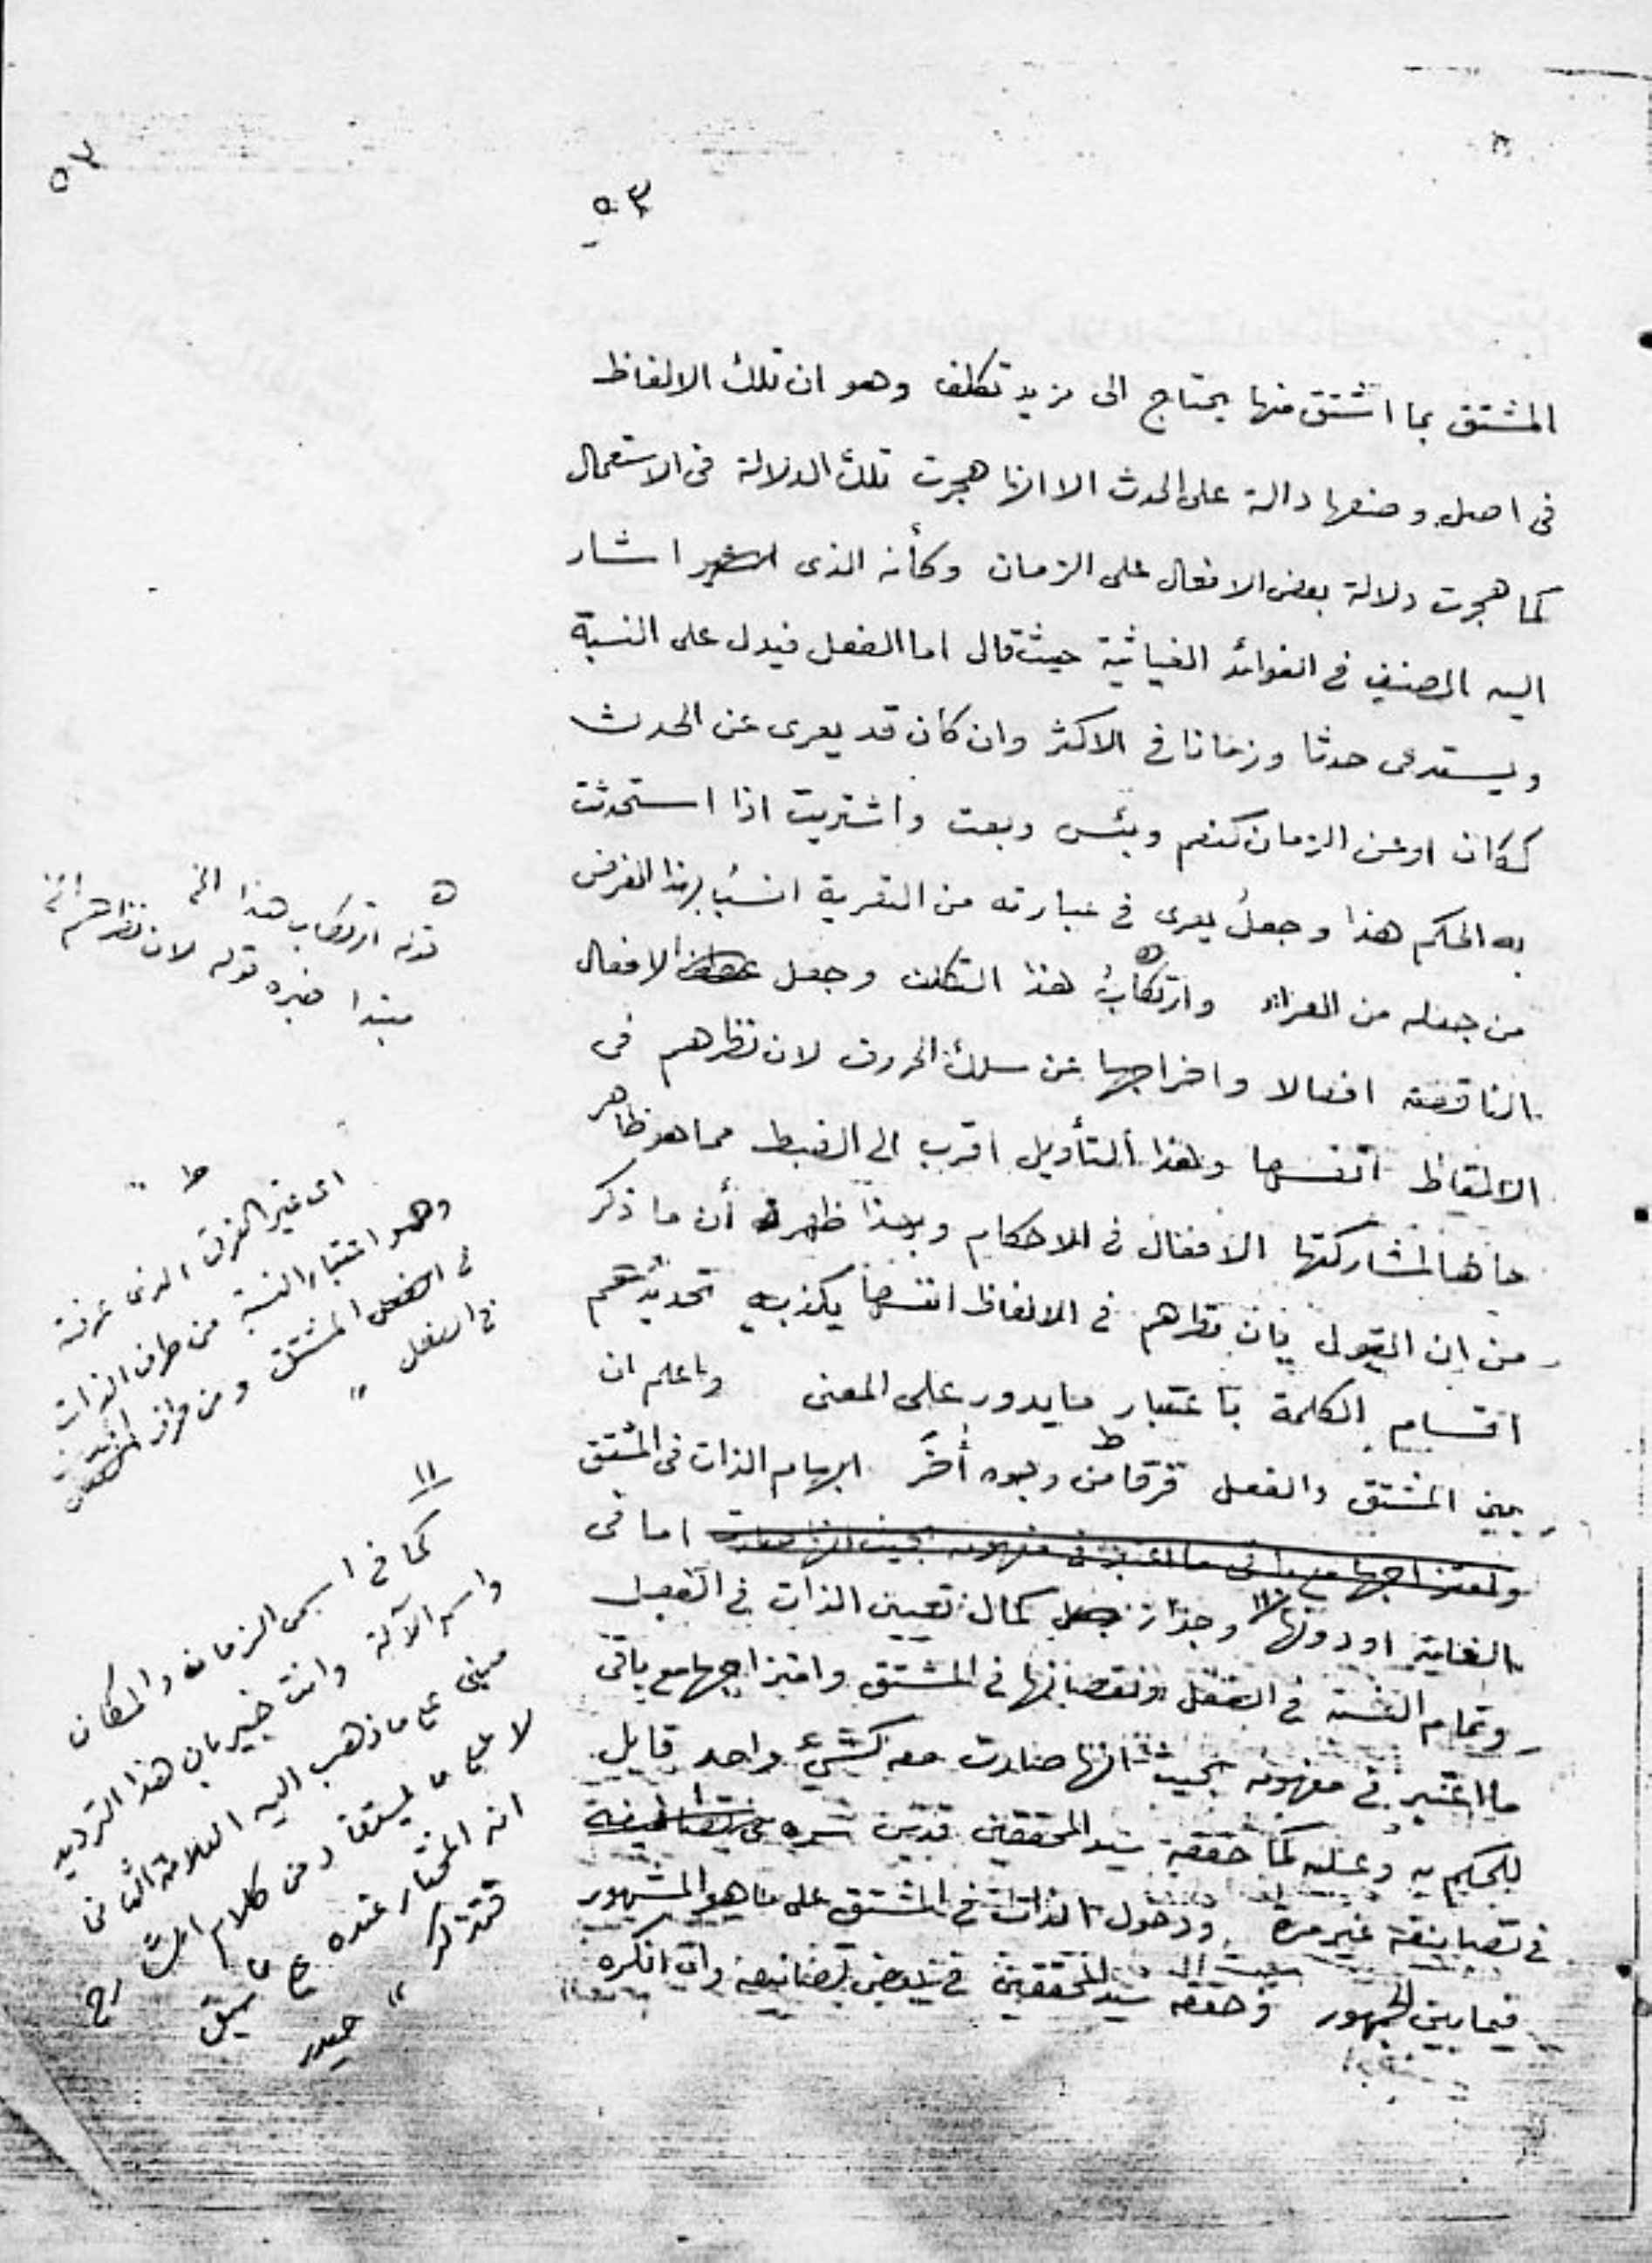 ٥٣
٥٣
المشتق بما اشتق منها يحتاج الى مزيد تكلف وهو ان تلك الالفاظ
فى اصل وضعها دالة على الحدث الا انها هجرت تلك الدلالة فى الاستعمال
كما هجرت دلالة بعض الافعال على الزمان وكأنه الذى اشار
اليه المصنف فى الفوائد الغياثية حيث قال اما الفعل فيدل على النسبة
ويستدعى حدثا وزمانا فى الاكثر وان كان قد يعرى عن الحدث
ككان او عن الزمان كنعم وبئس وبعت واشتريت اذا استحدثت
به الحكم هذا وجعل يعرى فى عبارته من التعرية انسب بهذا الغرض
من جعله من العراء وارتكاب هذا التكلف وجعل الافعال
الناقصة افعالا واخراجها عن سلك الحروف لان نظرهم فى
الالفاظ انفسها وهذا التأويل اقرب الى الضبط مما هو ظاهر
حالها لمشاركتها الافعال فى الاحكام وبهذا ظهر أن ما ذكر
من ان القول بان نظرهم فى الالفاظ انفسها يكذبه تحديدهم
اقسام الكلمة باعتبار ما يدور على المعنى واعلم ان
بين المشتق والفعل فرقا من وجوه أخر ابهام الذات فى المشتق
اما فى
الغاية او دونها وجواز كمال تعيين الذات فى الفعل
وتمام النسبة فى الفعل ونقصانها فى المشتق وامتزاجها مع باقى
ما اعتبر فى مفهومه بحيث انها صارت معه كشئ واحد قابل
للحكم به وعليه كما حققه سيد المحققين قدس سره
فى تصانيفه غير مرة ودخول الذات فى المشتق على ما هو المشهور
فيما بين الجمهور وحققه سيد المحققين فى بعض تصانيفه وان انكره
قوله ارتكاب هذا الخ
مبتدا خبره قوله لان نظرهم الخ
ط
اى غير الفرق الذى عرفته
وهو اعتبار النسبة من طرف الذات
فى المشتق ومن طرف الحدث
فى الفعل
١١
كما فى اسمى الزمان والمكان
واسم الآلة وانت خبير بان هذا الترديد
مبنى على ما ذهب اليه العلامة الثانى
لا على ما يستفاد من كلام الشارح
انه المختار عنده على ما سبق
فتذكر
حيدر